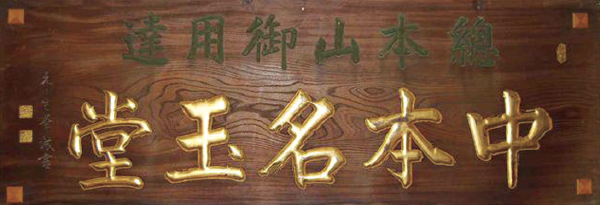 總本山御用達
中本名玉堂